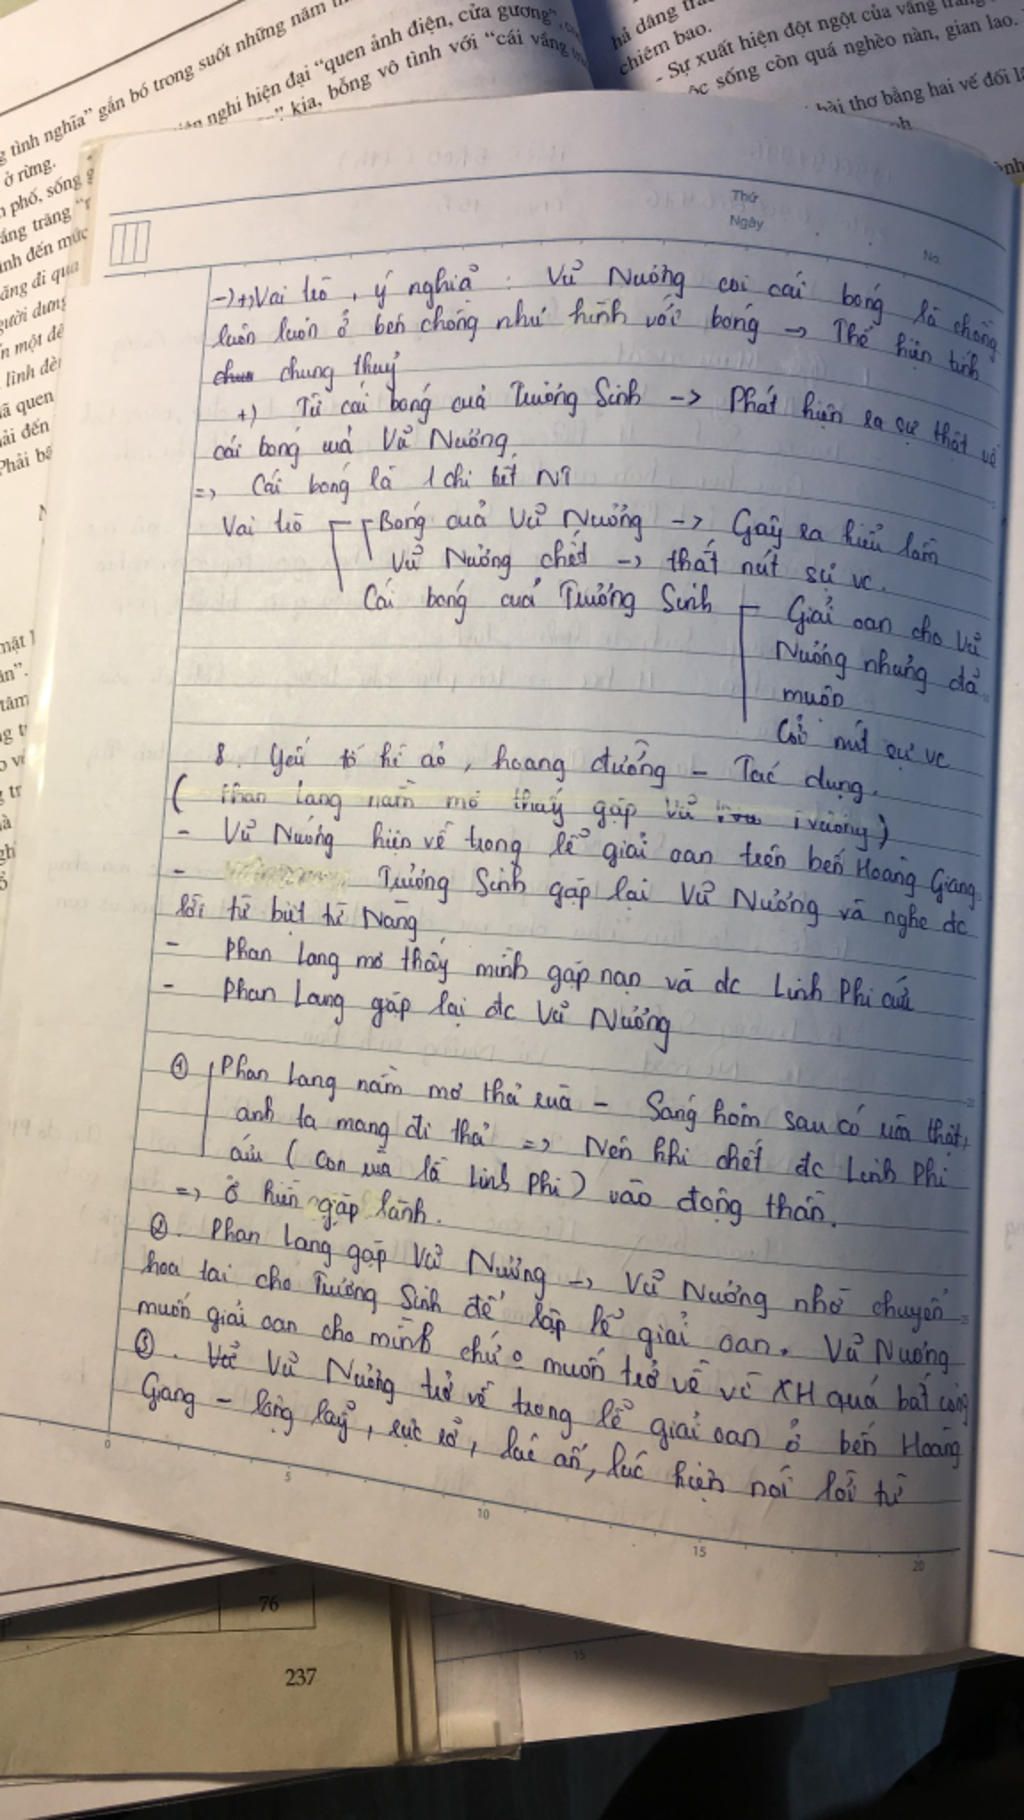 g tình nghĩa” gắn bó trong suốt những năm
nghi hiện đại “quen ánh điện, cửa gương”,
kia, bỗng vô tình với “cái vầng
ở rừng.
phố, sống
ầng trăng
ình đến mức
ăng đi qua
gười dưng
n một
lình đè
ã quen
ải đến
Phải
chiêm bao.
- Sự xuất hiện đột ngột của vầng
ộc sống còn quá nghèo nàn, gian lao.
bài thơ bằng hai vế đối
Thứ
Ngày
No.
-> +) Vai trò, ý nghĩa : Vũ Nương coi cái bóng là chồng
luôn luôn ở bên chồng như hình với bóng -> Thể hiện tình
chung thuỷ
+) Từ cái bóng của Trương Sinh -> Phát hiện ra sự thật về
cái bóng của Vũ Nương
=> Cái bóng là 1 chi tiết NT
Vai trò Bóng của Vũ Nương -> Gây ra hiểu lầm
Vũ Nương chết -> thắt nút sự vc.
Cái bóng của Trương Sinh Giải oan cho Vũ
Nương nhưng đã
muộn
Cởi nút sự vc
8. Yếu tố kì ảo, hoang đường - Tác dụng.
( Phan Lang nằm mơ thấy gặp Vũ
- Vũ Nương hiện về trong lễ giải oan trên bến Hoàng Giang
- Trương Sinh gặp lại Vũ Nương và nghe đc
lời từ biệt từ Nàng
- Phan Lang mơ thấy mình gặp nạn và đc Linh Phi cứu
- Phan Lang gặp lại đc Vũ Nương
① Phan Lang nằm mơ thả rùa - Sáng hôm sau có rùa thật,
anh ta mang đi thả => Nên khi chết đc Linh Phi
cứu ( con rùa là Linh Phi ) vào động thần.
=> ở hiền gặp lành.
②. Phan Lang gặp Vũ Nương -> Vũ Nương nhờ chuyển
hoa tai cho Trương Sinh để lập lễ giải oan. Vũ Nương
muốn giải oan cho mình chứ o muốn trở về vì XH quá bất công
③. Vũ Nương trở về trong lễ giải oan ở bến Hoàng
Giang - lộng lẫy, rực rỡ, lúc ẩn, lúc hiện nói lời từ
0
5
10
15
20
76
237
15